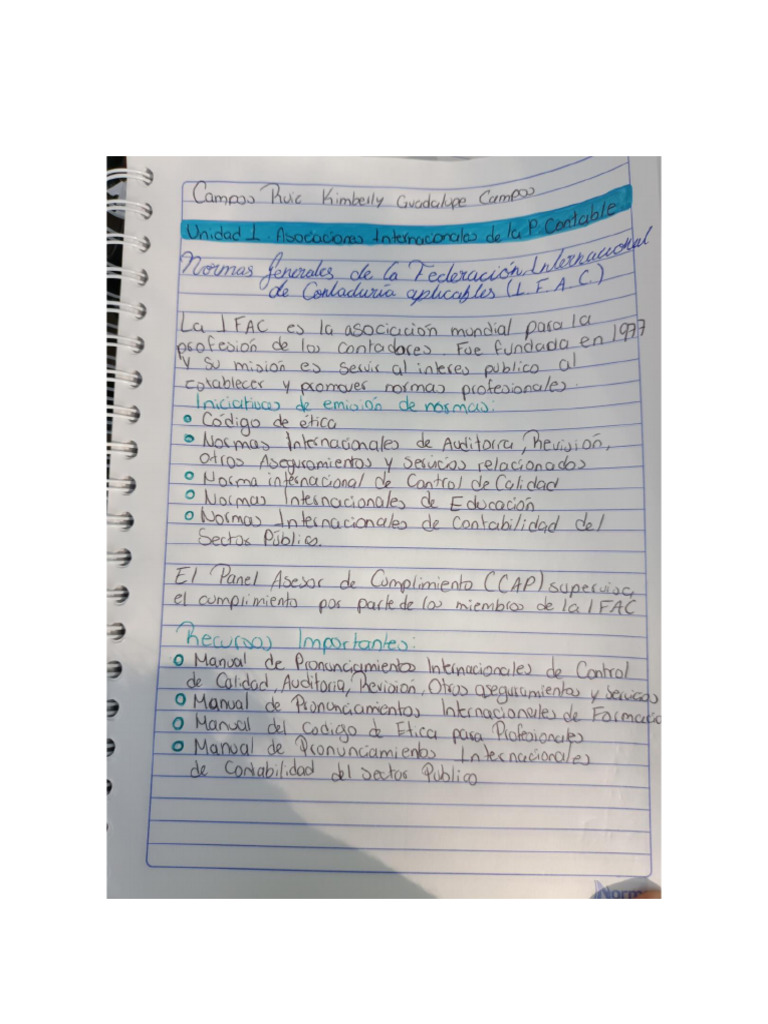 Campos Ruiz Kimberly Guadalupe Campos
Unidad 1. Asociaciones Internacionales de la P. Contable
Normas generales de la Federación Internacional
de Contaduría aplicables (I.F.A.C.)
La IFAC es la asociación mundial para la
profesión de los contadores. Fue fundada en 1977
y su misión es servir al interes publico al
establecer y promover normas profesionales.
Iniciativas de emisión de normas:
Código de ética
Normas Internacionales de Auditorra, Revisión,
otros Aseguramientos y servicios relacionados
Norma internacional de Control de Calidad
Normas Internacionales de Educación
Normas Internacionales de Contabilidad del
Sector Público.
El Panel Asesor de Cumplimiento (CCAP) supervisa,
el cumplimiento por parte de los miembros de la IFAC
Recursos Importantes:
Manual de Pronunciamientos Internacionales de Control
de Calidad, Auditoria, Revisión, Otros aseguramientos y servicios
Manual de Pronunciamientos Internacionales de Formacio
Manual del Codigo de Etica para Profesionales
Manual de Pronunciamientos Internacionales
de Contabilidad del sector Publico
Norm